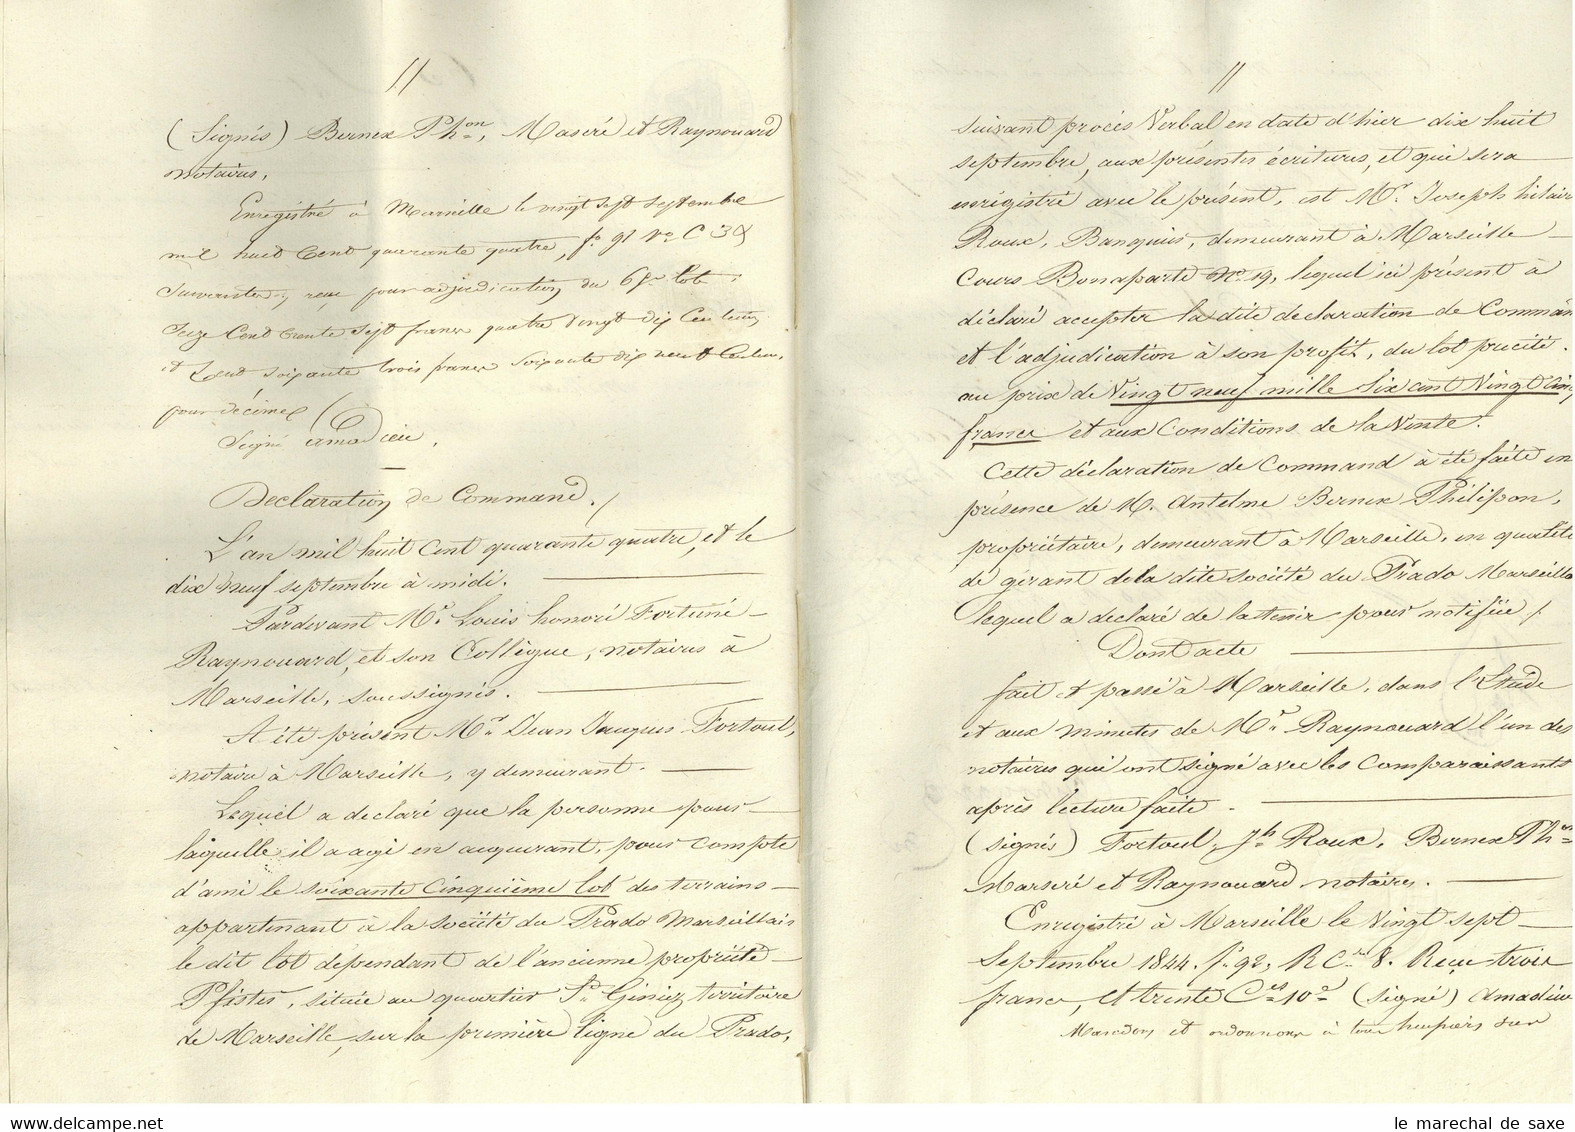 (Signés) Bernex Ph.on, Maseré et Raynouard
notaires,
Enregistré à Marseille le vingt sept septembre
mil huit Cent quarante quatre, f.o 91 V.o C
reçu pour adjudication du 65.e lot,
Seize Cent trente Sept francs quatre vingt dix Centimes
et Cent soixante trois francs soixante dix neuf Centim.
pour décimes
Signé Amadieu.
Déclaration de Command. /
L'an mil huit Cent quarante quatre, et le
dix neuf septembre à midi.
Pardevant M.e Louis honoré Fortuné
Raynouard, et son Collègue, notaires à
Marseille, soussignés.
A été présent M.r Jean Jacques Fortoul,
notaire à Marseille, y demeurant.
Lequel a declaré que la personne pour
laquelle il a agi en acquerant, pour compte
d'ami le soixante cinquième lot des terrains
appartenant à la société du Prado Marseillais
le dit lot dépendant de l'ancienne propriété
Pfister, située au quartier S.t Giniez territoire
de Marseille, sur la première ligne du Prado,
//
suivant procès Verbal en date d'hier dix huit
septembre, aux présentes écritures, et qui sera
enrégistré avec le présent, est M.r Joseph hilaire
Roux, Banquier, demeurant à Marseille
Cours Bonaparte N.o 19, lequel ici présent à
déclaré accepter la dite déclaration de Comman
et l'adjudication à son profit, du lot précité.
au prix de Vingt neuf mille Six cent Vingt cinq
francs et aux Conditions de la Vente.
Cette déclaration de Command à été faite en
présence de M. Antelme Bernex Philipon,
propriétaire, demeurant à Marseille, en qualité
de gérant de la dite société du Prado Marseilla
lequel a declaré de la tenir pour notifiée /.
Dont acte
fait et passé à Marseille, dans l'Etude
et aux minutes de M.e Raynouard l'un des
notaires qui ont signé avec les Comparaissants
après lecture faite.
(signés) Fortoul, J.h Roux, Bernex Ph.on
Maseré et Raynouard notaires.
Enregistré à Marseille le Vingt sept
Septembre 1844. f.o 92, R C.se 8. Reçu trois
francs, et trente C.es 10.e (signé) Amadieu
Mandons et ordonnons à tous huissiers sur
le marechal de saxe